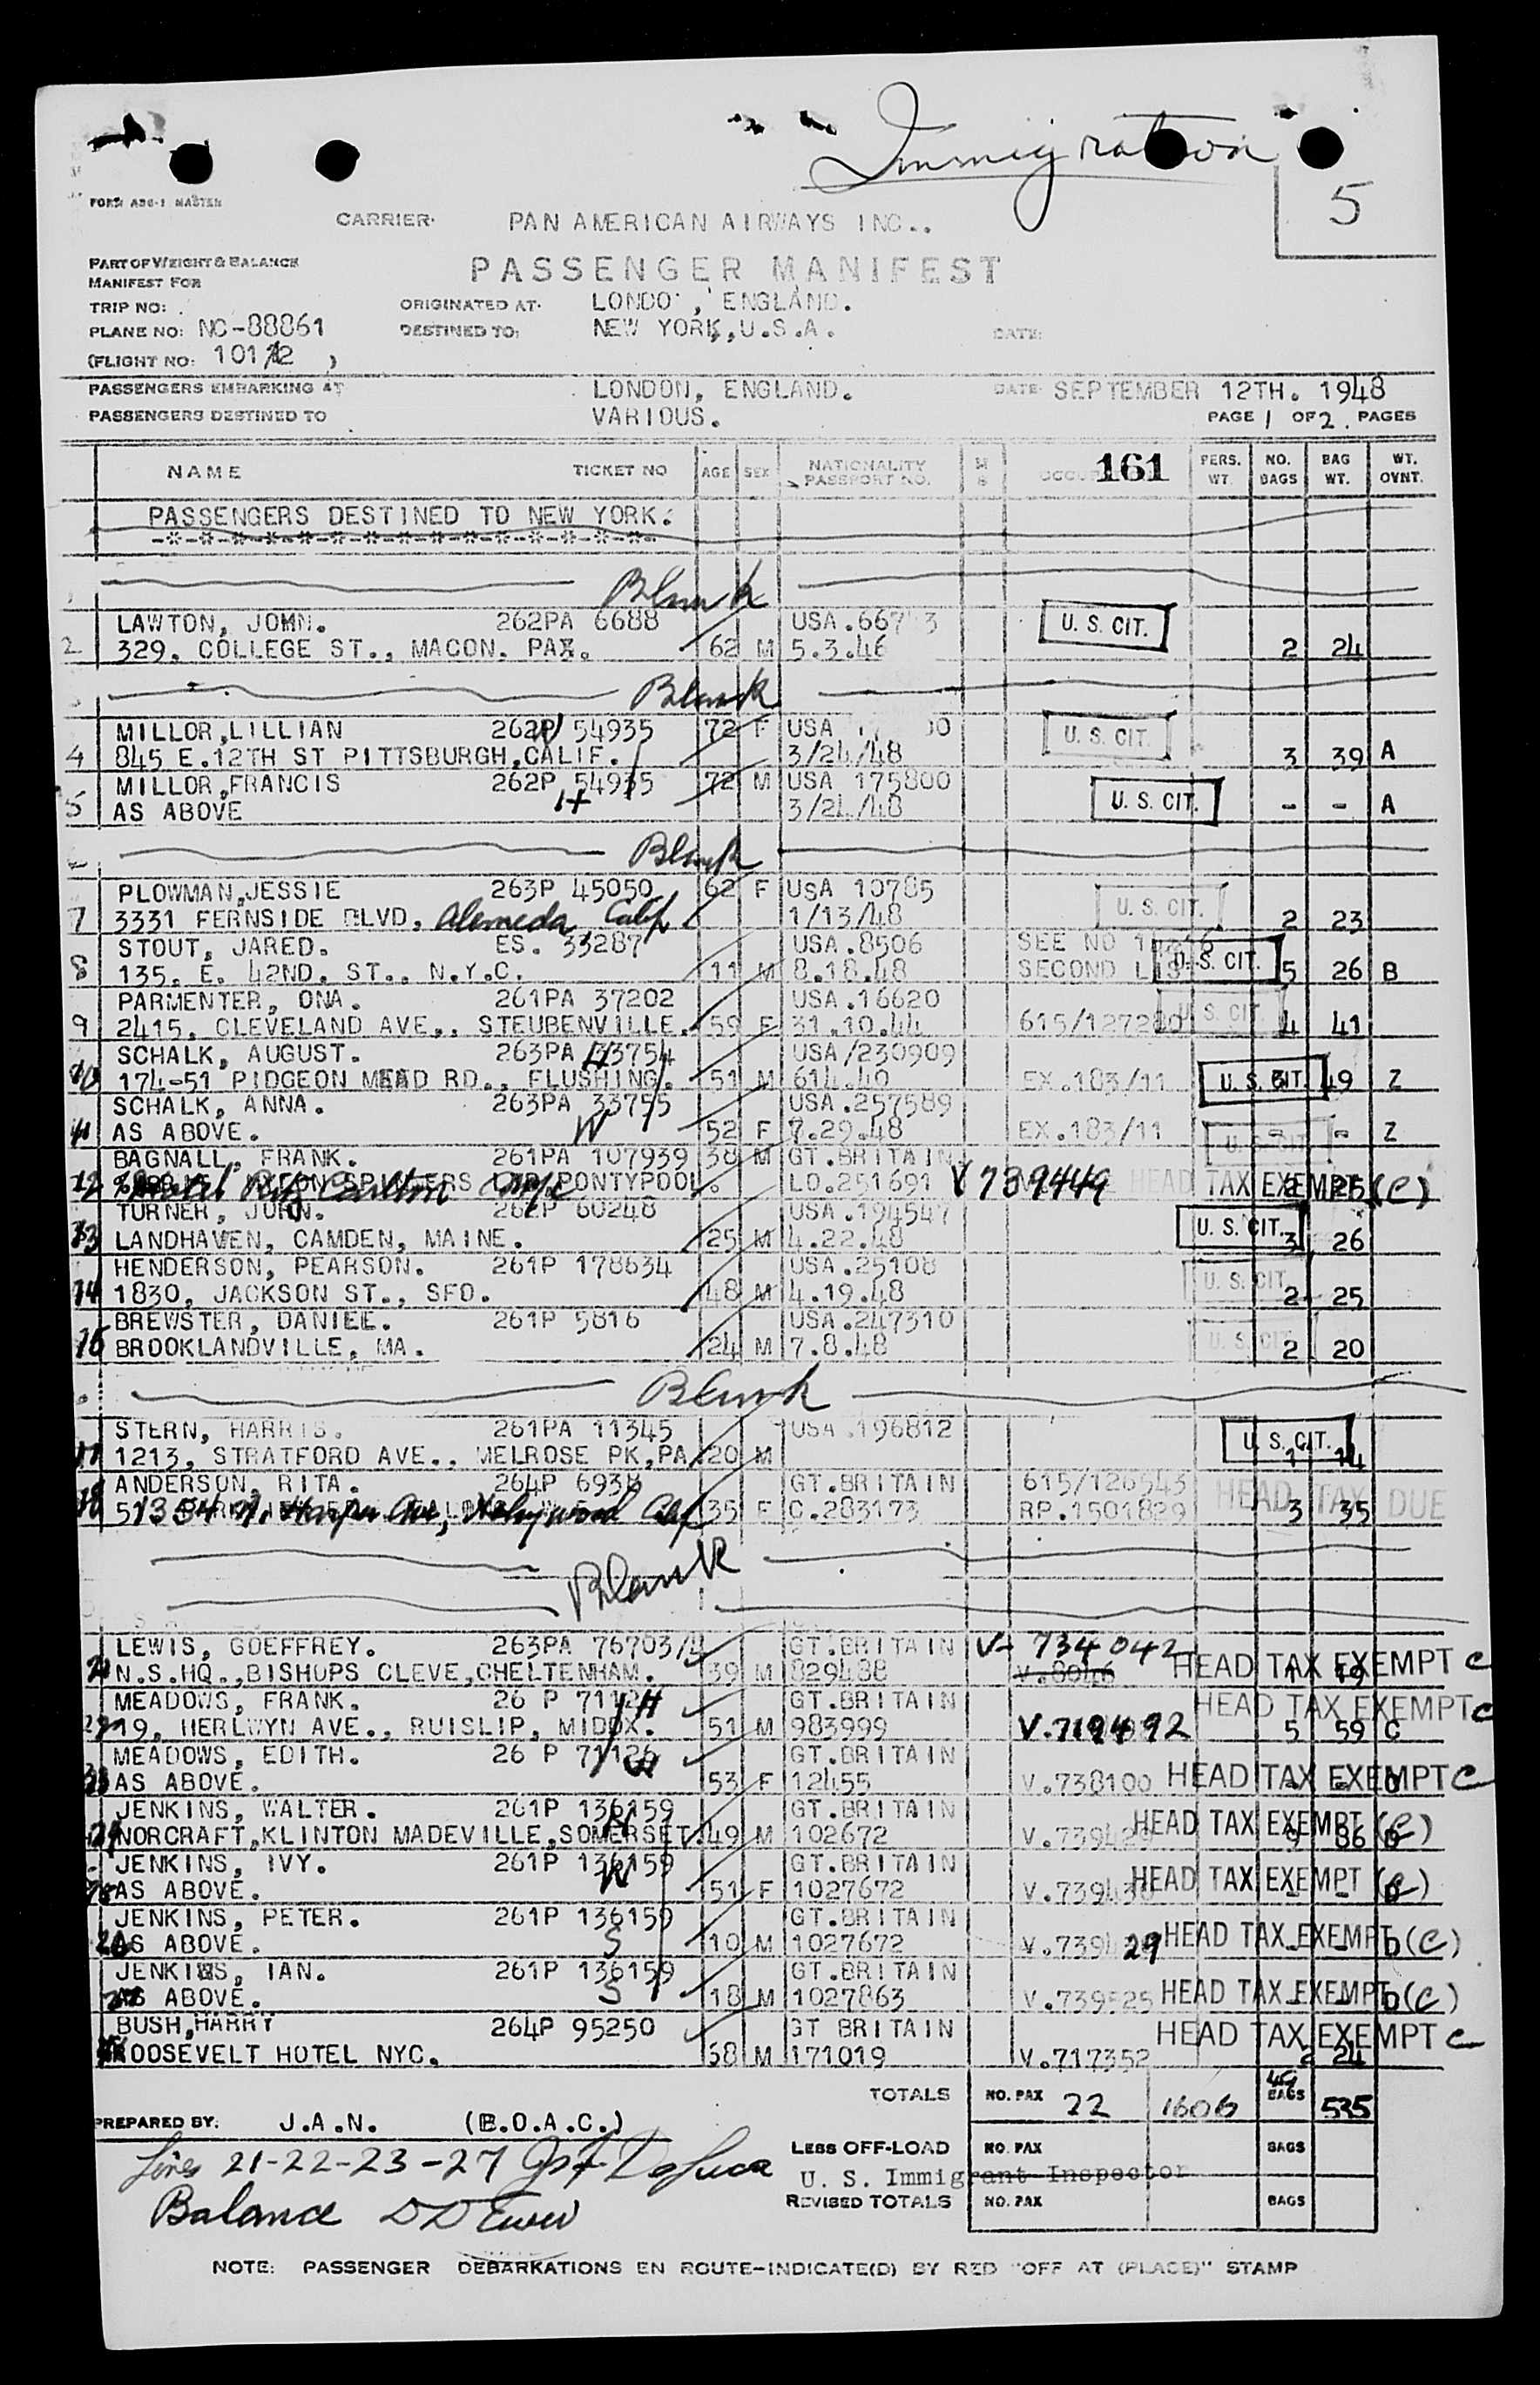 Immigration
5
FORM ADG-1 MASTER
CARRIER· PAN AMERICAN AIRWAYS INC..
PART OF WEIGHT & BALANCE
MANIFEST FOR
PASSENGER MANIFEST
TRIP NO: ORIGINATED AT· LONDO , ENGLAND.
PLANE NO: NC-88861 DESTINED TO: NEW YORK,U.S.A. DATE:
(FLIGHT NO: 101 )
PASSENGERS EMBARKING AT LONDON, ENGLAND. DATE· SEPTEMBER 12TH. 1948
PASSENGERS DESTINED TO VARIOUS. PAGE 1 OF 2. PAGES
NAME TICKET NO AGE SEX NATIONALITY PASSPORT NO. 161 PERS. WT. NO. BAGS BAG WT. WT. OVNT.
PASSENGERS DESTINED TO NEW YORK.
-*-*-*-*-*-*-*-*-*-*-*-*-*-*-*-
Blank
LAWTON, JOHN. 262PA 6688 USA.667 3 U. S. CIT.
2 329. COLLEGE ST., MACON. 62 M 5.3.46 2 24
Blank
MILLOR,LILLIAN 262P 54935 72 F USA 00 U. S. CIT.
4 845 E.12TH ST PITTSBURGH,CALIF. 3/24/48 3 39 A
MILLOR,FRANCIS 262P 54935 72 M USA 175800 U. S. CIT.
5 AS ABOVE H 3/24/48 - - A
Blank
PLOWMAN,JESSIE 263P 45050 62 F USA 10785 U. S. CIT.
7 3331 FERNSIDE BLVD, Alameda Calif 1/13/48 2 23
STOUT, JARED. ES. 33287 USA.8506 SEE NO
8 135. E. 42ND. ST., N.Y.C. 11 M 8.18.48 SECOND LIS U. S. CIT. 5 26 B
PARMENTER, ONA. 261PA 37202 USA.16620 U. S. CIT.
9 2415. CLEVELAND AVE,. STEUBENVILLE. 59 F 31.10.44 615/127280 4 41
SCHALK, AUGUST. 263PA 33754 H USA/230909
10 174-51 PIDGEON MEAD RD., FLUSHING. 51 M 614.40 EX.183/11 U. S. CIT. 49 Z
SCHALK, ANNA. 263PA 33755 USA.257589
11 AS ABOVE. W 52 F 7.29.48 EX.183/11 U. S. CIT. - Z
BAGNALL, FRANK. 261PA 107939 38 M GT.BRITAIN
12 Hotel Ritz Carlton NYC PONTYPOOL. LO.251691 V739449 HEAD TAX EXEMPT (C) 25
TURNER, JOHN. 262P 60248 USA.194547
13 LANDHAVEN, CAMDEN, MAINE. 25 M 4.22.48 U. S. CIT. 3 26
HENDERSON, PEARSON. 261P 178634 USA.25108
14 1830, JACKSON ST., SFO. 48 M 4.19.48 U. S. CIT. 2 25
BREWSTER, DANIEL. 261P 5816 USA.247310
15 BROOKLANDVILLE, MA. 24 M 7.8.48 U. S. CIT. 2 20
Blank
STERN, HARRIS. 261PA 11345 USA.196812
17 1213, STRATFORD AVE., MELROSE PK,PA 20 M U. S. CIT. 1 14
ANDERSON, RITA. 264P 6938 GT.BRITAIN 615/126543
18 1334 N. Harper Ave, Hollywood Calif 35 F C.283173 RP.1501829 HEAD TAX DUE 3 35
Blank
LEWIS, GOEFFREY. 263PA 76703/4 GT.BRITAIN V- 734042
21 N.S.HQ.,BISHOPS CLEVE,CHELTENHAM. 39 M 829488 V.8046 HEAD TAX EXEMPT C 1 19
MEADOWS, FRANK. 26 P 71124 H GT.BRITAIN HEAD TAX EXEMPT C
22 19, HERLWYN AVE., RUISLIP, MIDDX. 51 M 983999 V.719492 5 59 C
MEADOWS, EDITH. 26 P 71126 W GT.BRITAIN
23 AS ABOVE. 53 F 12455 V.738100 HEAD TAX EXEMPT C
JENKINS, WALTER. 261P 136159 H GT.BRITAIN
24 NORCRAFT,KLINTON MADEVILLE,SOMERSET. 49 M 102672 V.739429 HEAD TAX EXEMPT (C) 9 86 D
JENKINS, IVY. 261P 136159 GT.BRITAIN
25 AS ABOVE. W 51 F 1027672 V.739430 HEAD TAX EXEMPT (C) D
JENKINS, PETER. 261P 136159 GT.BRITAIN
26 AS ABOVE. S 10 M 1027672 V.739429 HEAD TAX EXEMPT D(C)
JENKINS, IAN. 261P 136159 GT.BRITAIN
27 AS ABOVE. S 18 M 1027863 V.739525 HEAD TAX EXEMPT D(C)
BUSH,HARRY 264P 95250 GT BRITAIN HEAD TAX EXEMPT C
ROOSEVELT HOTEL NYC. 38 M 171019 V.717352 2 24
TOTALS NO. PAX 22 1606 49 BAGS 535
PREPARED BY: J.A.N. (B.O.A.C.)
LESS OFF-LOAD NO. PAX BAGS
Lines 21-22-23-27
U. S. Immigrant Inspector
REVISED TOTALS NO. PAX BAGS
Balance
NOTE: PASSENGER DEBARKATIONS EN ROUTE-INDICATE(D) BY RED "OFF AT (PLACE)" STAMP